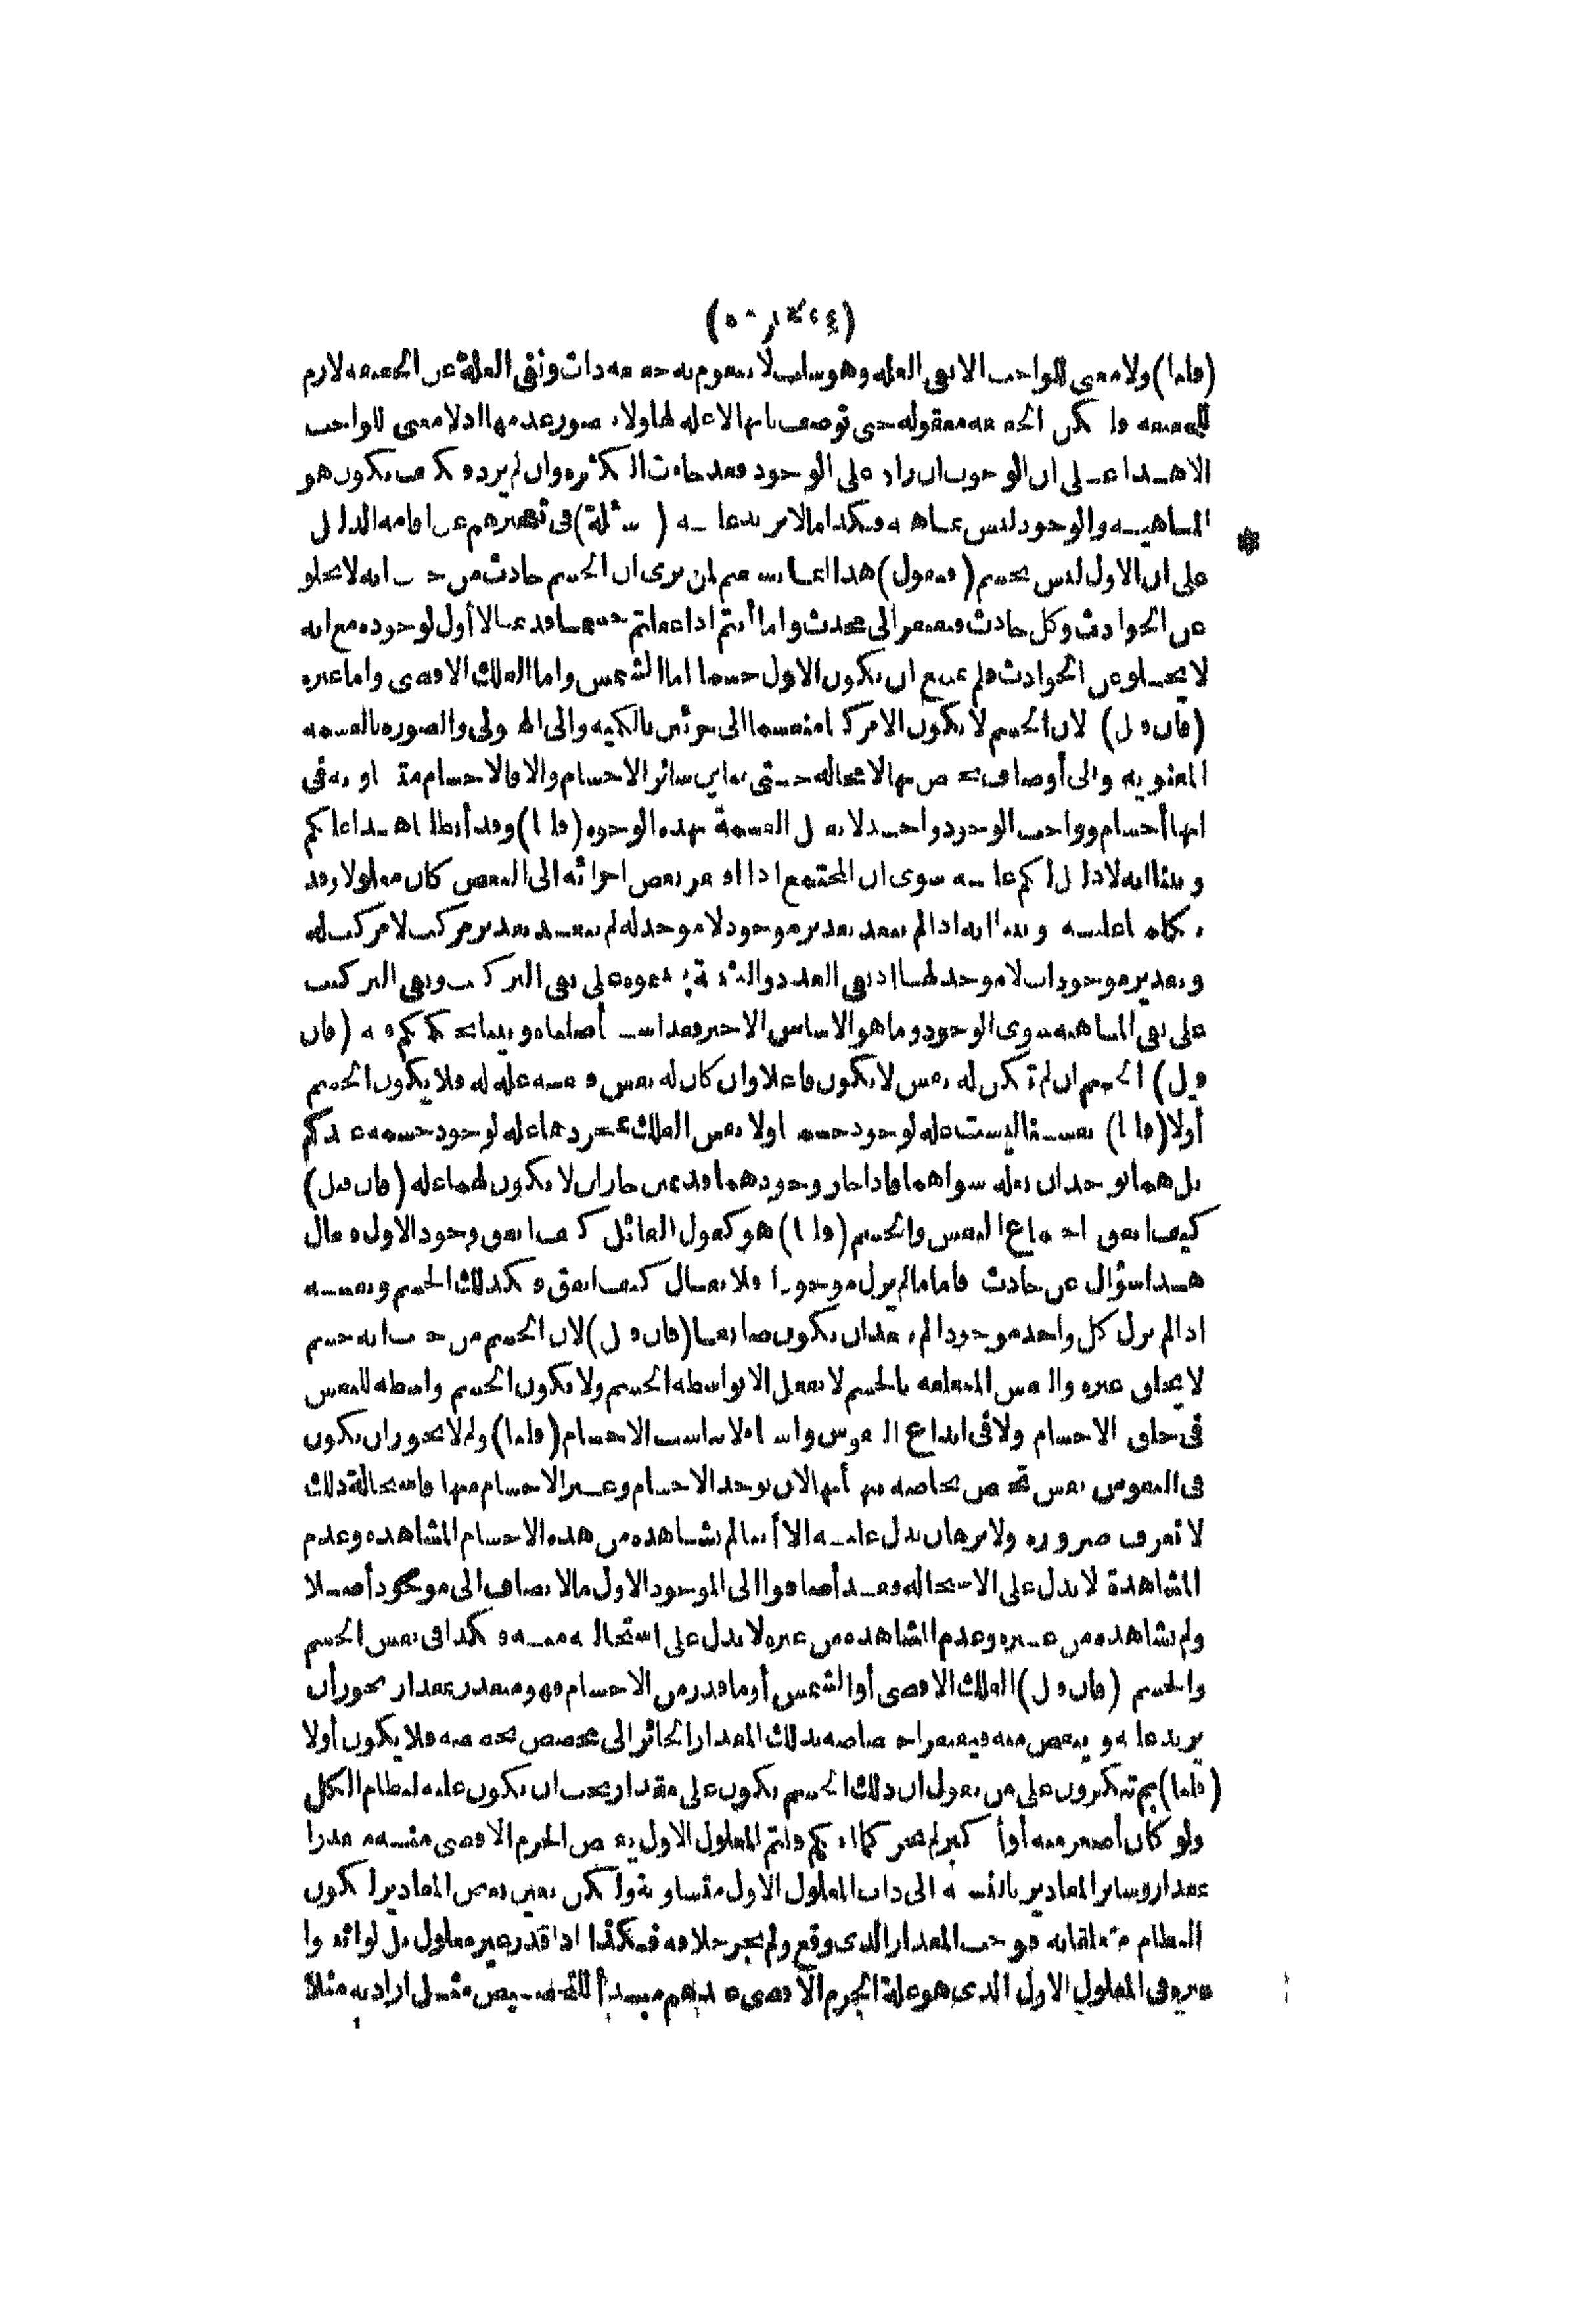 (قلنا) ولا معنى للواجب الا نفى العلة وهو سلب لا يتقوم به حقيقة ذات ونفى العلة عن الحقيقة لازم
للحقيقة فلتكن الحقيقة معقولة حتى توصف بانها لا علة لها ولا يتصور عدمها اذ لا معنى للواجب
الا هذا على ان الوجوب ان زاد على الوجود فقد جاءت الكثرة وان لم يزد فكيف يكون هو
الماهية والوجود ليس بماهية فكذا ما لا يزيد عليه (مسئلة) فى تعجيزهم عن اقامة الدليل
على ان الاول ليس بجسم (فنقول) هذا انما يستقيم لمن يرى ان الجسم حادث من حيث انه لا يخلو
عن الحوادث وكل حادث فيفتقر الى محدث واما أنتم اذا عقلتم جسما قديما لا أول لوجوده مع انه
لا يخلو عن الحوادث فلم يمتنع ان يكون الاول جسما اما الشمس واما الفلك الاقصى واما غيره
(فان قيل) لان الجسم لا يكون الا مركبا منقسما الى جزئين بالكمية والى الهيولى والصورة بالقسمة
المعنوية والى أوصاف يختص بها لا محالة حتى يباين سائر الاجسام والا فالاجسام متساوية فى
انها أجسام وواجب الوجود واحد لا يقبل القسمة بهذه الوجوه (قلنا) وقد أبطلنا هذا عليكم
وبينا انه لا دليل لكم عليه سوى ان المجتمع اذا افتقر بعض اجزائه الى البعض كان معلولا وقد
تكلمنا عليه وبينا انه اذا لم يبعد تقدير موجود لا موجد له لم يبعد تقدير مركب لا مركب له
وتقدير موجودات لا موجد لها اذ نفى العدد والتثنية بنيتموه على نفى التركيب ونفى التركيب
على نفى الماهية سوى الوجود وما هو الاساس الاخير فقد استأصلناه وبينا تحكمكم فيه (فان
قيل) الجسم ان لم تكن له نفس لا يكون فاعلا وان كان له نفس فنفسه علة له فلا يكون الجسم
أولا (قلنا) نفسنا ليست علة لوجود جسمنا ولا نفس الفلك بمجردها علة لوجود جسمه عندكم
بل هما يوجدان بعلة سواهما فاذا جاز وجودهما قديمين جاز ان لا يكون لهما علة (فان قيل)
كيف اتفق اجتماع النفس والجسم (قلنا) هو كقول القائل كيف اتفق وجود الاول فيقال
هذا سؤال عن حادث فاما ما لم يزل موجودا فلا يقال كيف اتفق فكذلك الجسم ونفسه
اذا لم يزل كل واحد موجودا لم يبعد ان يكون صانعا (فان قيل) لان الجسم من حيث انه جسم
لا يخلق غيره والنفس المتعلقة بالجسم لا تفعل الا بواسطة الجسم ولا يكون الجسم واسطة للنفس
فى خلق الاجسام ولا فى ابداع النفوس واشياء لا تناسب الاجسام (قلنا) ولم لا يجوز ان يكون
فى النفوس نفس تختص بخاصة تتهيأ بها لان توجد الاجسام وغير الاجسام منها فاستحالة ذلك
لا تعرف ضرورة ولا برهان يدل عليه الا أنه لم نشاهده من هذه الاجسام المشاهدة وعدم
المشاهدة لا يدل على الاستحالة فقد أضافوا الى الموجود الاول ما لا يضاف الى موجود أصلا
ولم نشاهده من غيره وعدم المشاهدة من غيره لا يدل على استحالته منه فكذا فى نفس الجسم
والجسم (فان قيل) الفلك الاقصى أو الشمس أو ما قدر من الاجسام فهو متقدر بمقدار يجوز أن
يزيد عليه وينقص منه فيفتقر اختصاصه بذلك المقدار الجائز الى مخصص يخصصه فلا يكون أولا
(قلنا) بم تنكرون على من يقول ان ذلك الجسم يكون على مقدار يجب ان يكون عليه لنظام الكل
ولو كان أصغر منه أو أكبر لم يجز كما انكم قلتم المعلول الاول يفيض الجرم الاقصى منه متقدرا
بمقدار وسائر المقادير بالنسبة الى ذات المعلول الاول متساوية ولكن تعين بعض المقادير لكون
النظام متعلقا به فوجب المقدار الذى وقع ولم يجز خلافه فكذا اذا قدر غير معلول بل لو اثبتوا
فى المعلول الاول الذى هو علة الجرم الاقصى عندهم مبدأ للتخصيص مثل ارادة مثلا